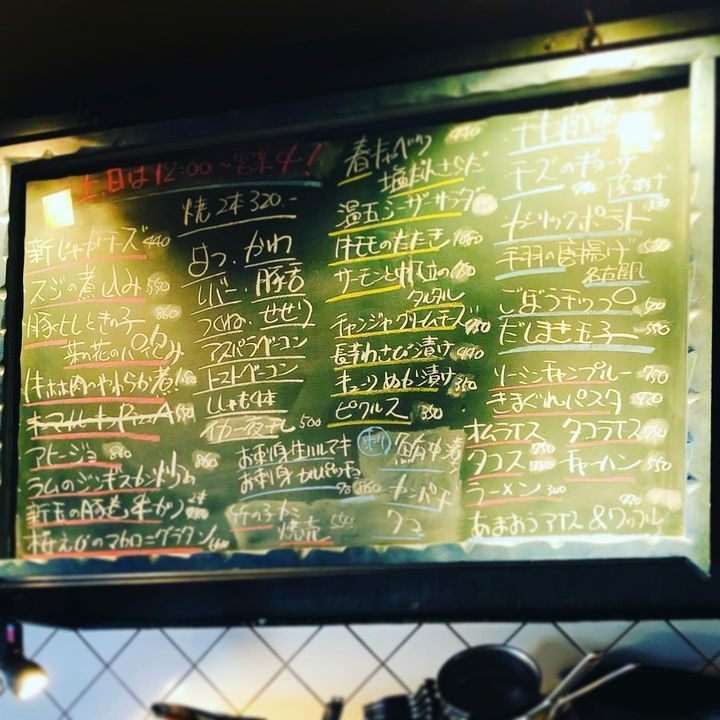 土、日は12:00〜営業中!
新じゃがチーズ 440
スジの煮込み 550
豚ヒレときの子 860
菜の花のパイ包み
牛ホホ肉のやわらか煮!
アヒージョ 860
ラムのジンギスカン炒め 860
新玉の豚巻き串かつ 2本
桜えびのマカロニグラタン
焼 2本 320.-
はつ、かわ
レバー、豚舌
つくね、せせり
アスパラベーコン
トマトベーコン
ししゃも4本
イカ一夜干し 500
お刺身生ハルマキ
お刺身カルパッチョ 860
竹の子カニ
焼売 550
春キャベツ 440
塩だれさらだ
温玉シーザーサラダ
牛モモのたたき
サーモンと帆立の
タルタル
チャンジャクリームチーズ
長芋わさび漬け 440
キュウリぬか漬け 360
ピクルス 350
カンパチ
タコ
チーズのギョーザ
皮あげ
ガーリックポテト
手羽の唐揚げ 550
名古屋風
ごぼうチップ
だしまき玉子 550
ソーミンチャンプルー 750
きまぐれパスタ
オムライス タコライス 750
タコス チャーハン 550
ラーメン 300
あまおうアイス&ワッフル